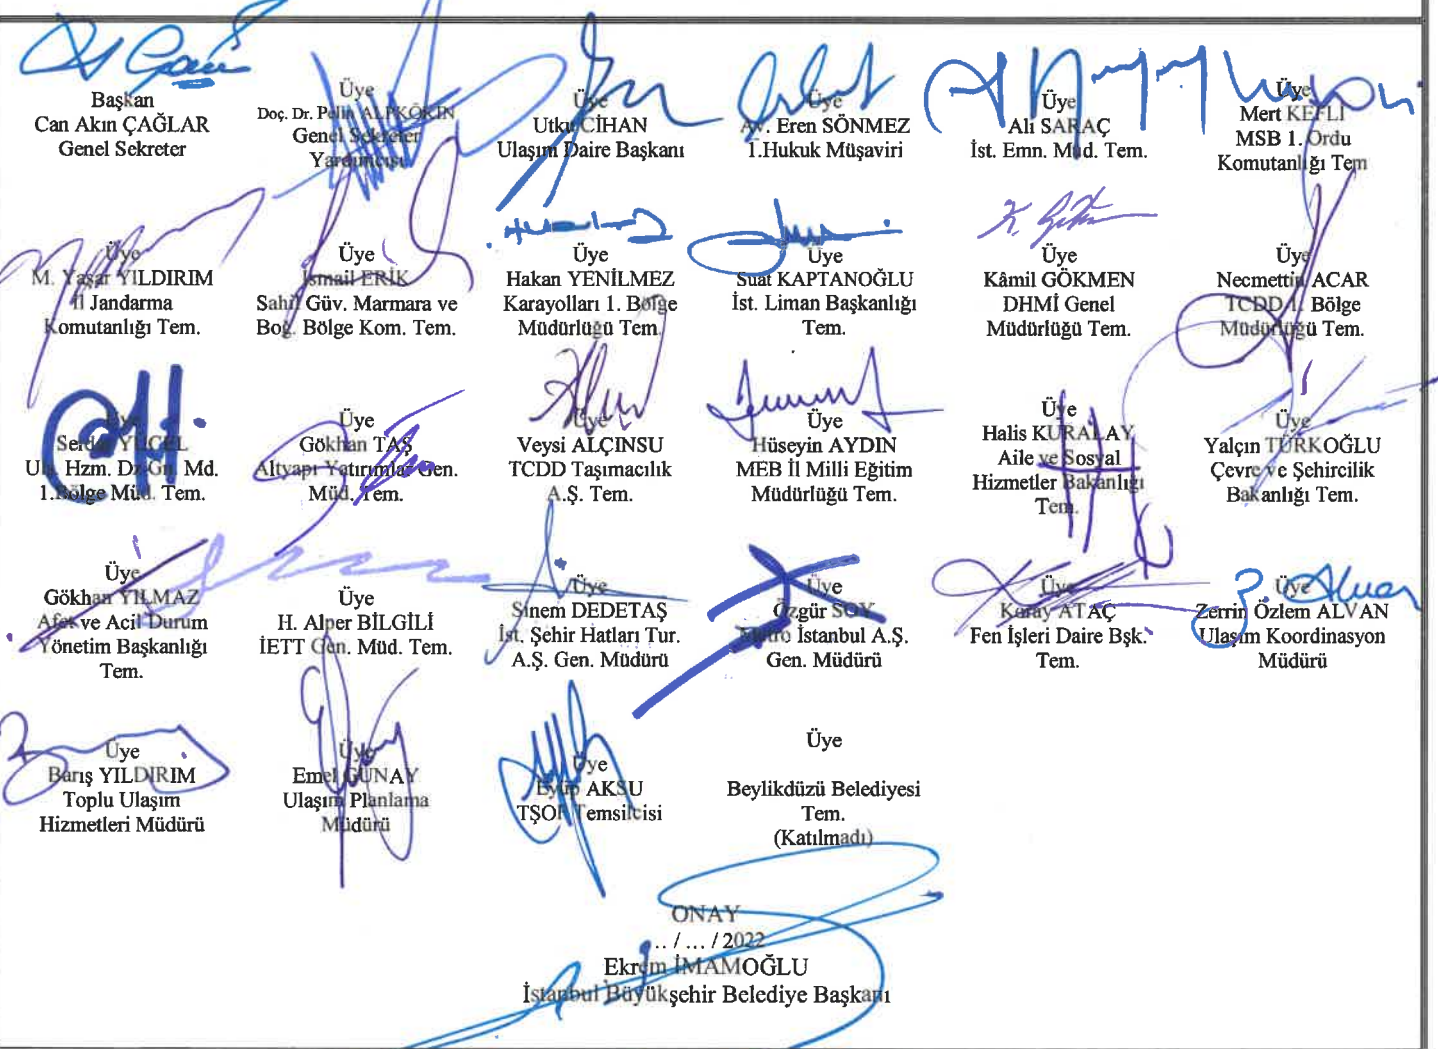 Başkan
Can Akın ÇAĞLAR
Genel Sekreter
Üye
Doç. Dr. Pelin ALPKÖKİN
Genel Sekreter
Yardımcısı
Üye
Utku CİHAN
Ulaşım Daire Başkanı
Üye
Av. Eren SÖNMEZ
1.Hukuk Müşaviri
Üye
Ali SARAÇ
İst. Emn. Müd. Tem.
Üye
Mert KEFLİ
MSB 1. Ordu
Komutanlığı Tem
Üye
M. Yaşar YILDIRIM
İl Jandarma
Komutanlığı Tem.
Üye
İsmail ERİK
Sahil Güv. Marmara ve
Boğ. Bölge Kom. Tem.
Üye
Hakan YENİLMEZ
Karayolları 1. Bölge
Müdürlüğü Tem.
Üye
Suat KAPTANOĞLU
İst. Liman Başkanlığı
Tem.
K. Gökmen
Üye
Kâmil GÖKMEN
DHMİ Genel
Müdürlüğü Tem.
Üye
Necmettin ACAR
TCDD 1. Bölge
Müdürlüğü Tem.
Üye
Serdar YÜCEL
Ula. Hzm. Dz. Gn. Md.
1.Bölge Müd. Tem.
Üye
Gökhan TAŞ
Altyapı Yatırımlar Gen.
Müd. Tem.
Üye
Veysi ALÇINSU
TCDD Taşımacılık
A.Ş. Tem.
Üye
Hüseyin AYDIN
MEB İl Milli Eğitim
Müdürlüğü Tem.
Üye
Halis KURALAY
Aile ve Sosyal
Hizmetler Bakanlığı
Tem.
Üye
Yalçın TÜRKOĞLU
Çevre ve Şehircilik
Bakanlığı Tem.
Üye
Gökhan YILMAZ
Afet ve Acil Durum
Yönetim Başkanlığı
Tem.
Üye
H. Alper BİLGİLİ
İETT Gen. Müd. Tem.
Üye
Sinem DEDETAŞ
İst. Şehir Hatları Tur.
A.Ş. Gen. Müdürü
Üye
Özgür SOY
Metro İstanbul A.Ş.
Gen. Müdürü
Üye
Koray ATAÇ
Fen İşleri Daire Bşk.
Tem.
Üye
Zerrin Özlem ALVAN
Ulaşım Koordinasyon
Müdürü
Üye
Barış YILDIRIM
Toplu Ulaşım
Hizmetleri Müdürü
Üye
Emel GÜNAY
Ulaşım Planlama
Müdürü
Üye
Eyüp AKSU
TŞOF Temsilcisi
Üye
Beylikdüzü Belediyesi
Tem.
(Katılmadı)
ONAY
... / ... / 2022
Ekrem İMAMOĞLU
İstanbul Büyükşehir Belediye Başkanı